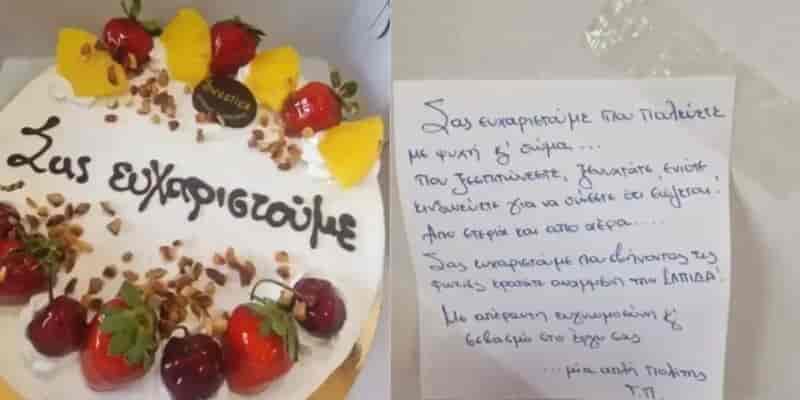 Σας ευχαριστούμε
Σας ευχαριστούμε που παλεύετε
με ψυχή κ' σώμα...
Που ξεσπιτώνεστε, ξενυχτάτε, ενίοτε
κινδυνεύετε για να σώσετε ότι σώζεται!
Από στεριά και από αέρα.....
Σας ευχαριστούμε που σβήνοντας τις
φωτιές κρατάτε αναμμένη την ΕΛΠΙΔΑ!
Με απέραντη ευγνωμοσύνη κ'
σεβασμό στο έργο σας
...μία απλή πολίτης
Τ.Π.